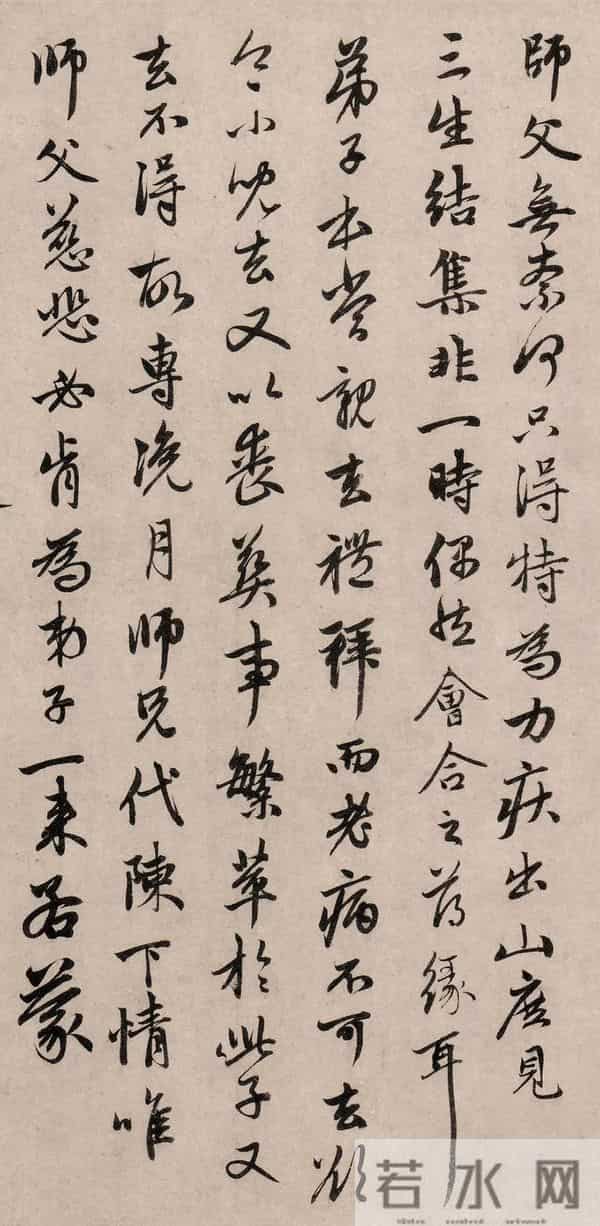 師父無柰何只得特為力疾出山庶見
三生結集非一時偶然會合之薄緣耳
弟子本當親去禮拜而老病不可去欲
令小兒去又以喪葬事繁萃於此子又
去不得故專浼月師兄代陳下情唯
師父慈悲必肯為弟子一来若蒙
若水网